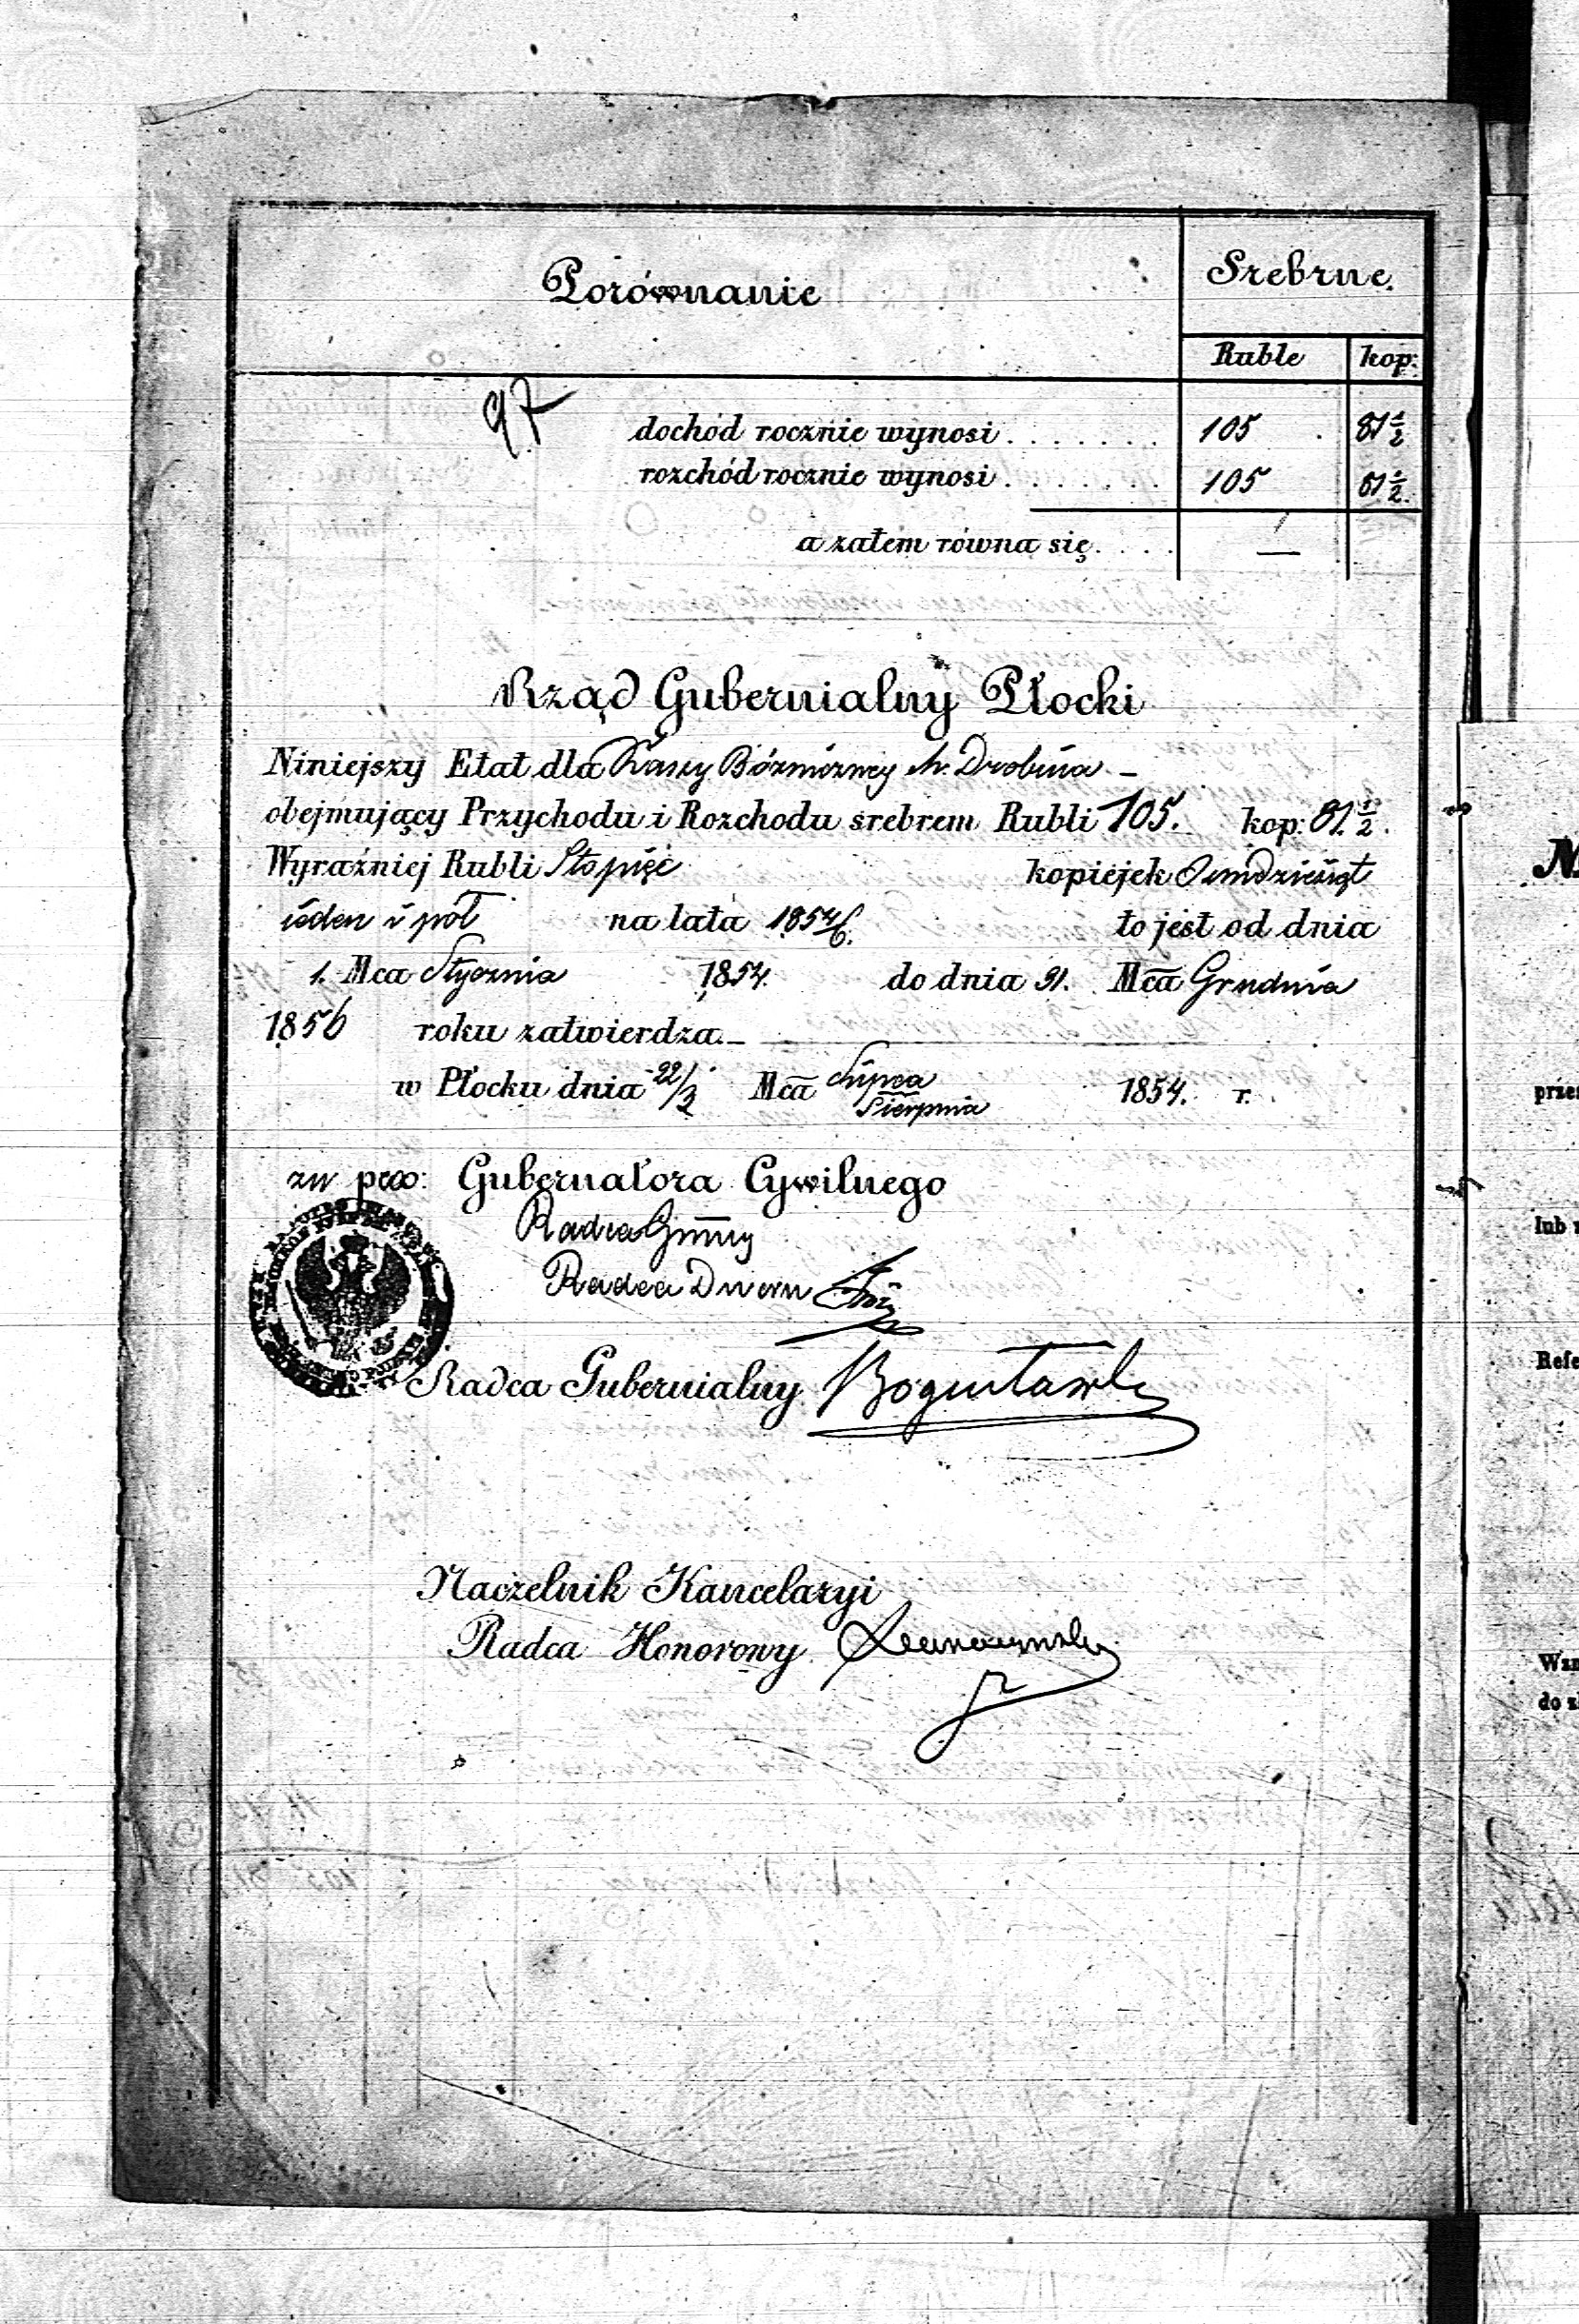 Porównanie
Srebrne.
Ruble kop:
97
dochód rocznie wynosi . . . . . . . 105 . 81 1/2
rozchód rocznie wynosi . . . . . . . 105 81 1/2.
a zatem równa się. . . . —
Rząd Gubernialny Płocki
Niniejszy Etat dla Kassy Bóżniczney M. Drobina —
obejmujący Przychodu i Rozchodu srebrem Rubli 105. kop: 81. 1/2.
Wyraźniej Rubli Stopięć kopiejek Osmdziesiąt
ieden i pół na lata 1854/6. to jest od dnia
1. Mca Stycznia 1854. do dnia 31. Mca Grudnia
1856 roku zatwierdza. —
w Płocku dnia 22/3 Mca Lipca
Sierpnia 1854. r.
zw Gubernatora Cywilnego
Radca
Radca Dworu
Radca Gubernialny Bogusławski
Naczelnik Kancelaryi
Radca Honorowy
N.
przes
lub
Refe
do